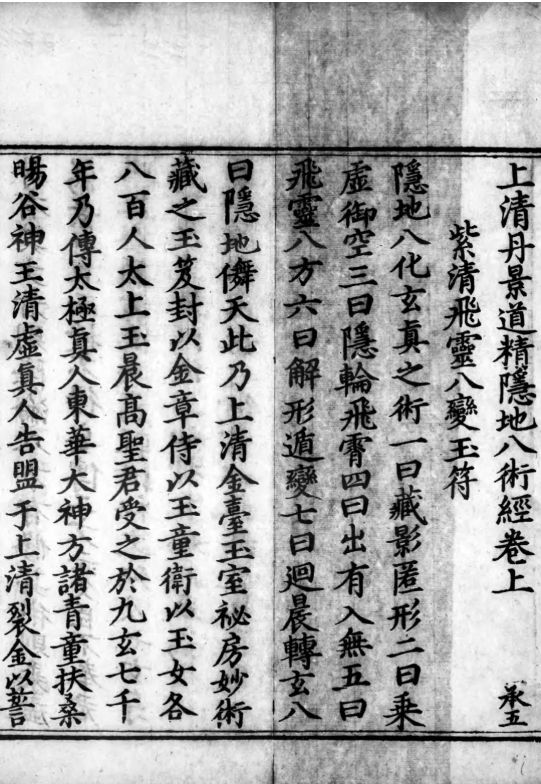 上清丹景道精隱地八術經卷上
承五
紫清飛靈八變玉符
隱地八化玄真之術一曰藏影匿形二曰乗
虛御空三曰隱輪飛霄四曰出有入無五曰
飛靈八方六曰解形遁變七曰迴晨轉玄八
曰隱地儛天此乃上清金臺玉室祕房妙術
藏之玉笈封以金章侍以玉童衛以玉女各
八百人太上玉晨髙聖君受之於九玄七千
年乃傳太極真人東華大神方諸青童扶桑
暘谷神王清虛真人告盟于上清裂金以誓